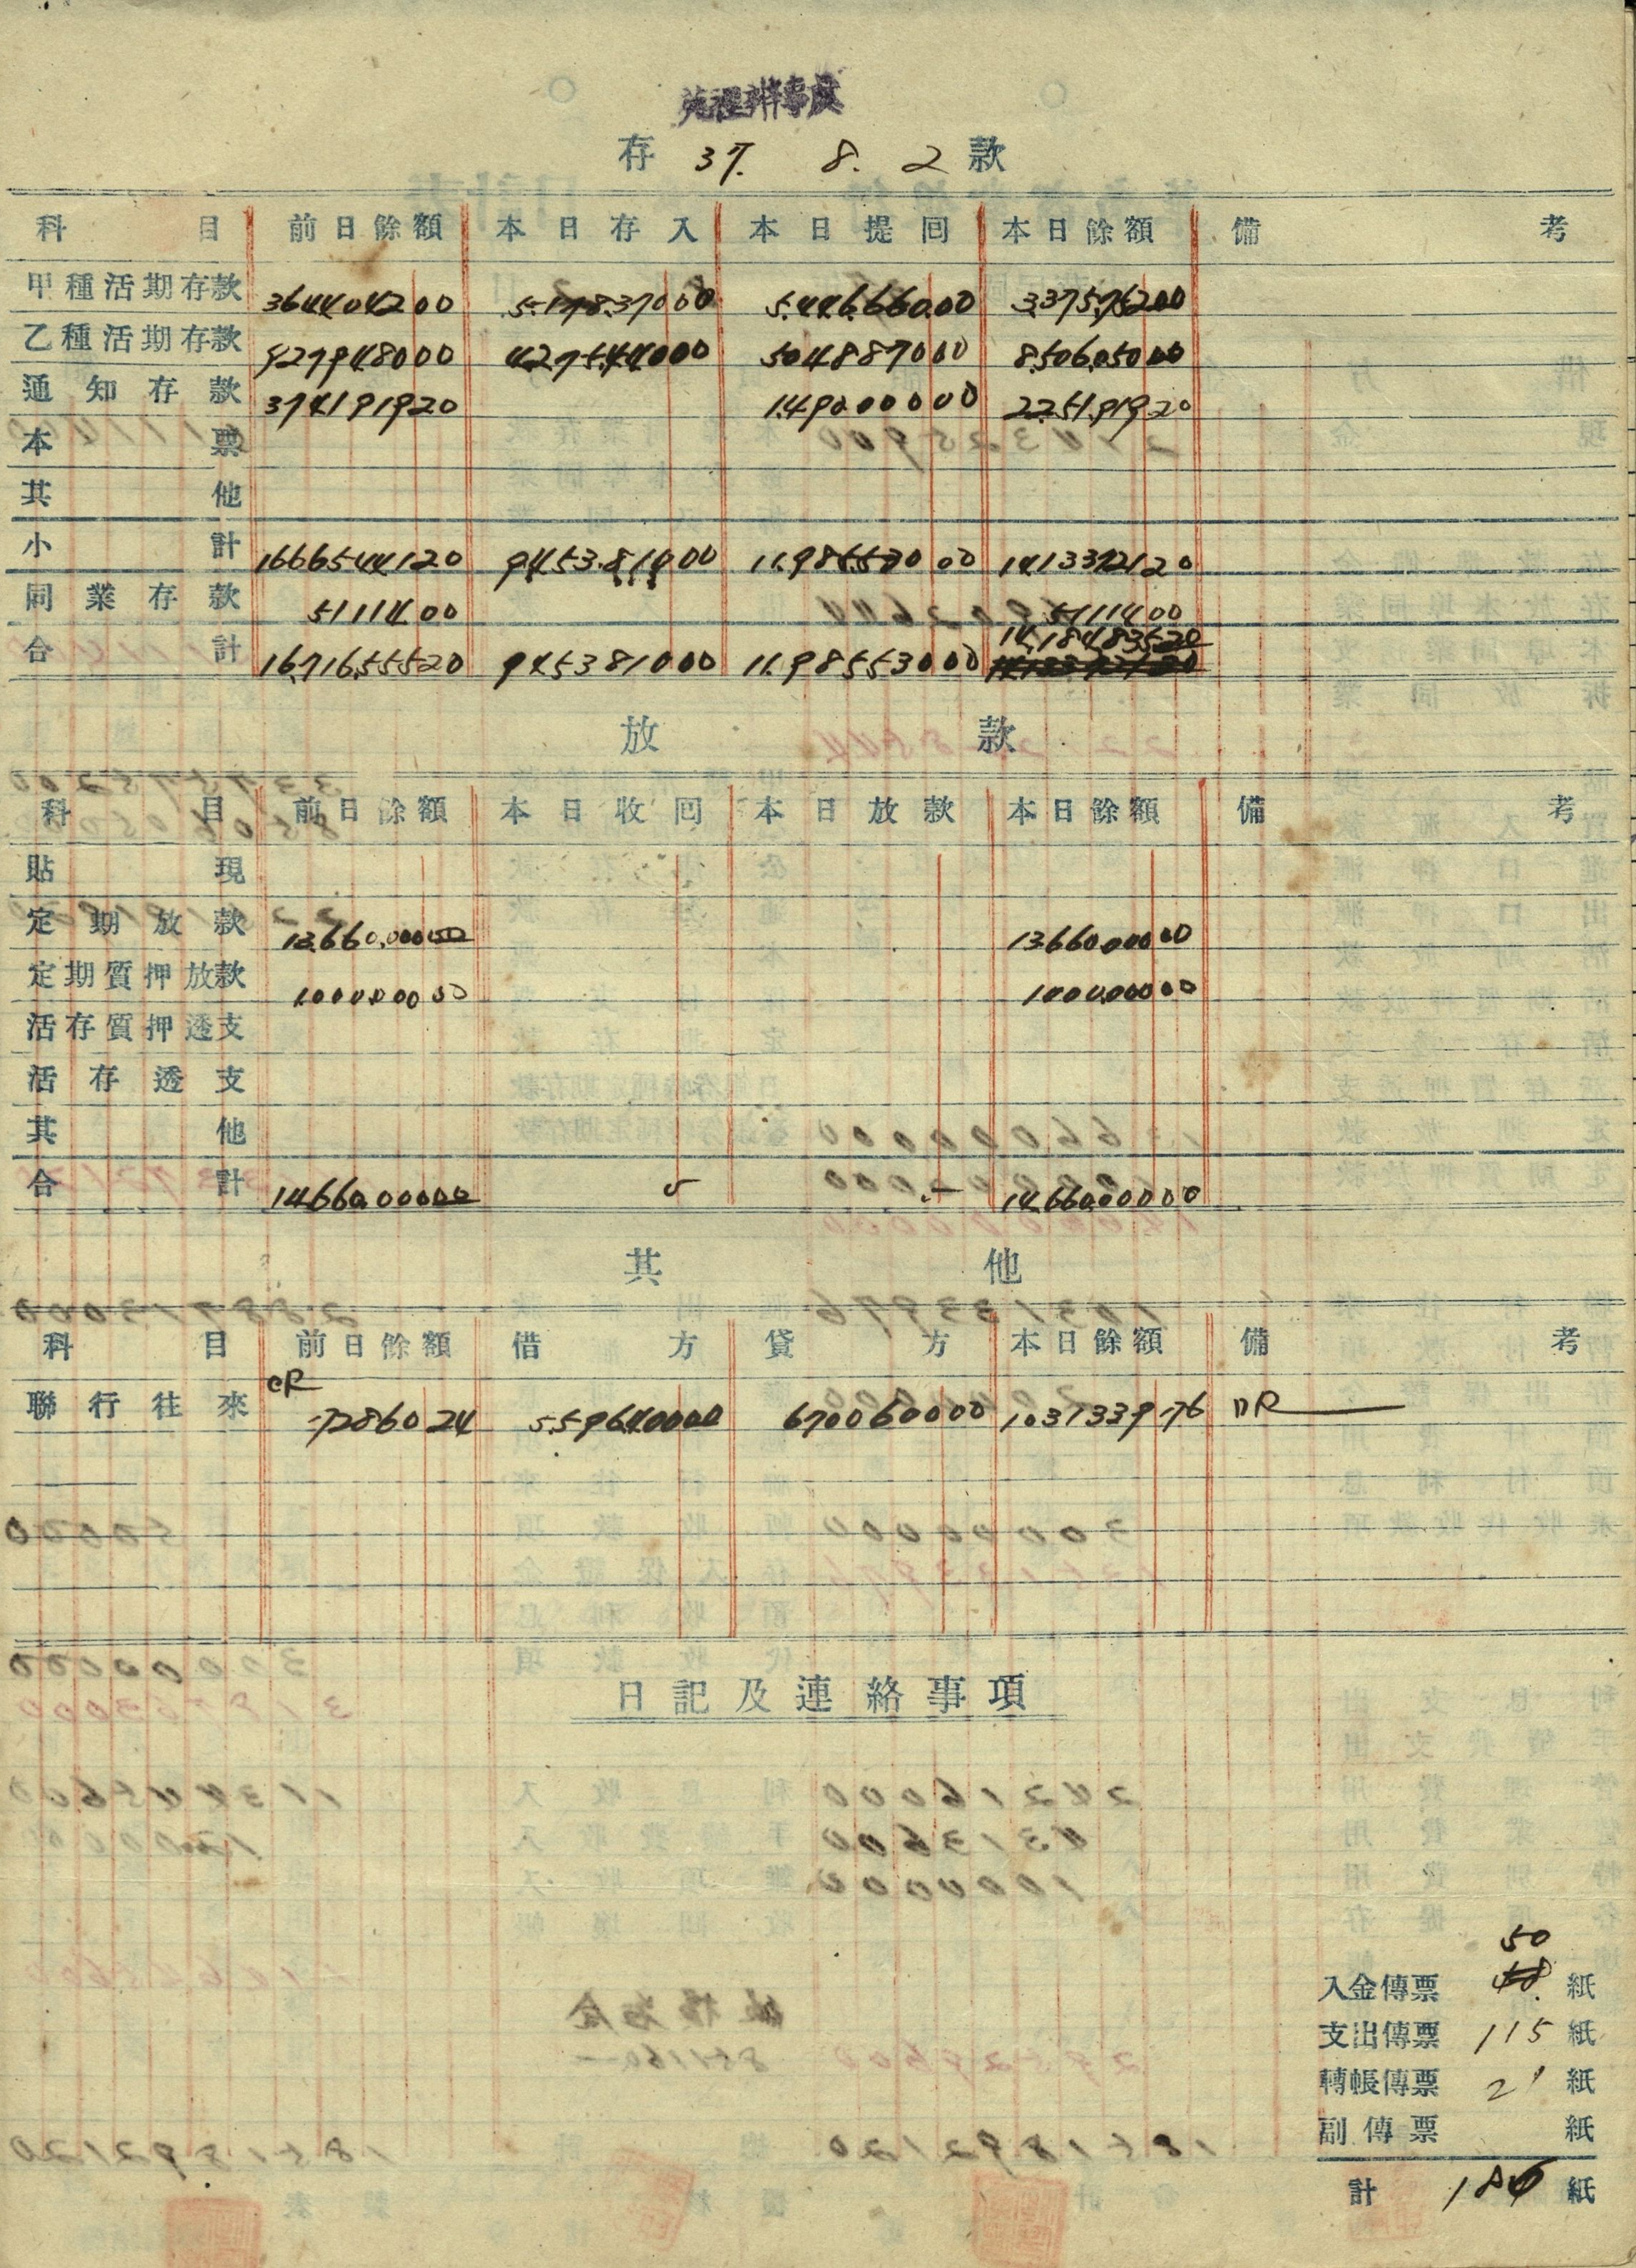 苑裡辦事處
存 37. 8. 2 款
科目 前日餘額 本日存入 本日提囘 本日餘額 備考
甲種活期存款 3644042 00 5.178.370 00 5.446.660.00 3.375.752 00
乙種活期存款 9279480 00 4.275.440 00 5048870 00 8.506.050 00
通知存款 3741919 20 1.490.000 00 2.251.919.20
本票
其他
小計 16665441 20 9.453.810 00 11.985530 00 14133721 20
同業存款 51114.00 51114 00
14.184.835.20
合計 16.716.555 20 9453810 00 11.985530 00
放款
科目 前日餘額 本日收囘 本日放款 本日餘額 備考
貼現
定期放款 13.660.000 00 13.660.000 00
定期質押放款 1.000.000 00 1.000.000 00
活存質押透支
活存透支
其他
合計 14.660.000 00 14.660.000 00
其他
科目 前日餘額 借方 貸方 本日餘額 備考
CR
聯行往來 72860 24 5.596.400 00 6700600 00 1.031339.76 DR
日記及連絡事項
50
入金傳票 48 紙
支出傳票 115 紙
轉帳傳票 21 紙
副傳票 紙
計 186 紙